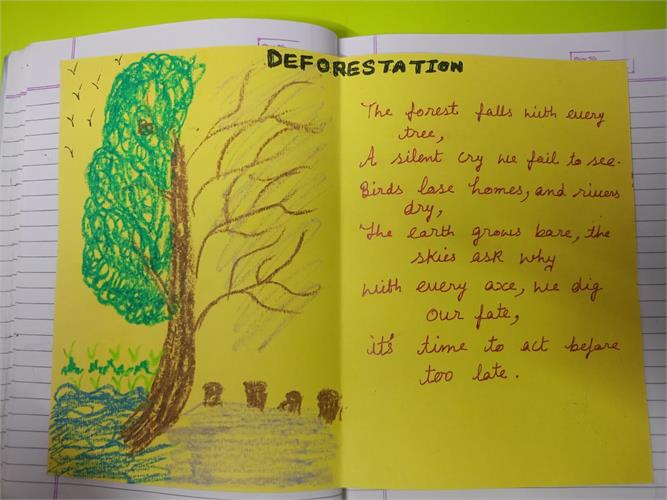 DEFORESTATION
The forest falls with every
tree,
A silent cry we fail to see.
Birds lose homes, and rivers
dry,
The earth grows bare, the
skies ask why
with every axe, we dig
our fate,
it's time to act before
too late.